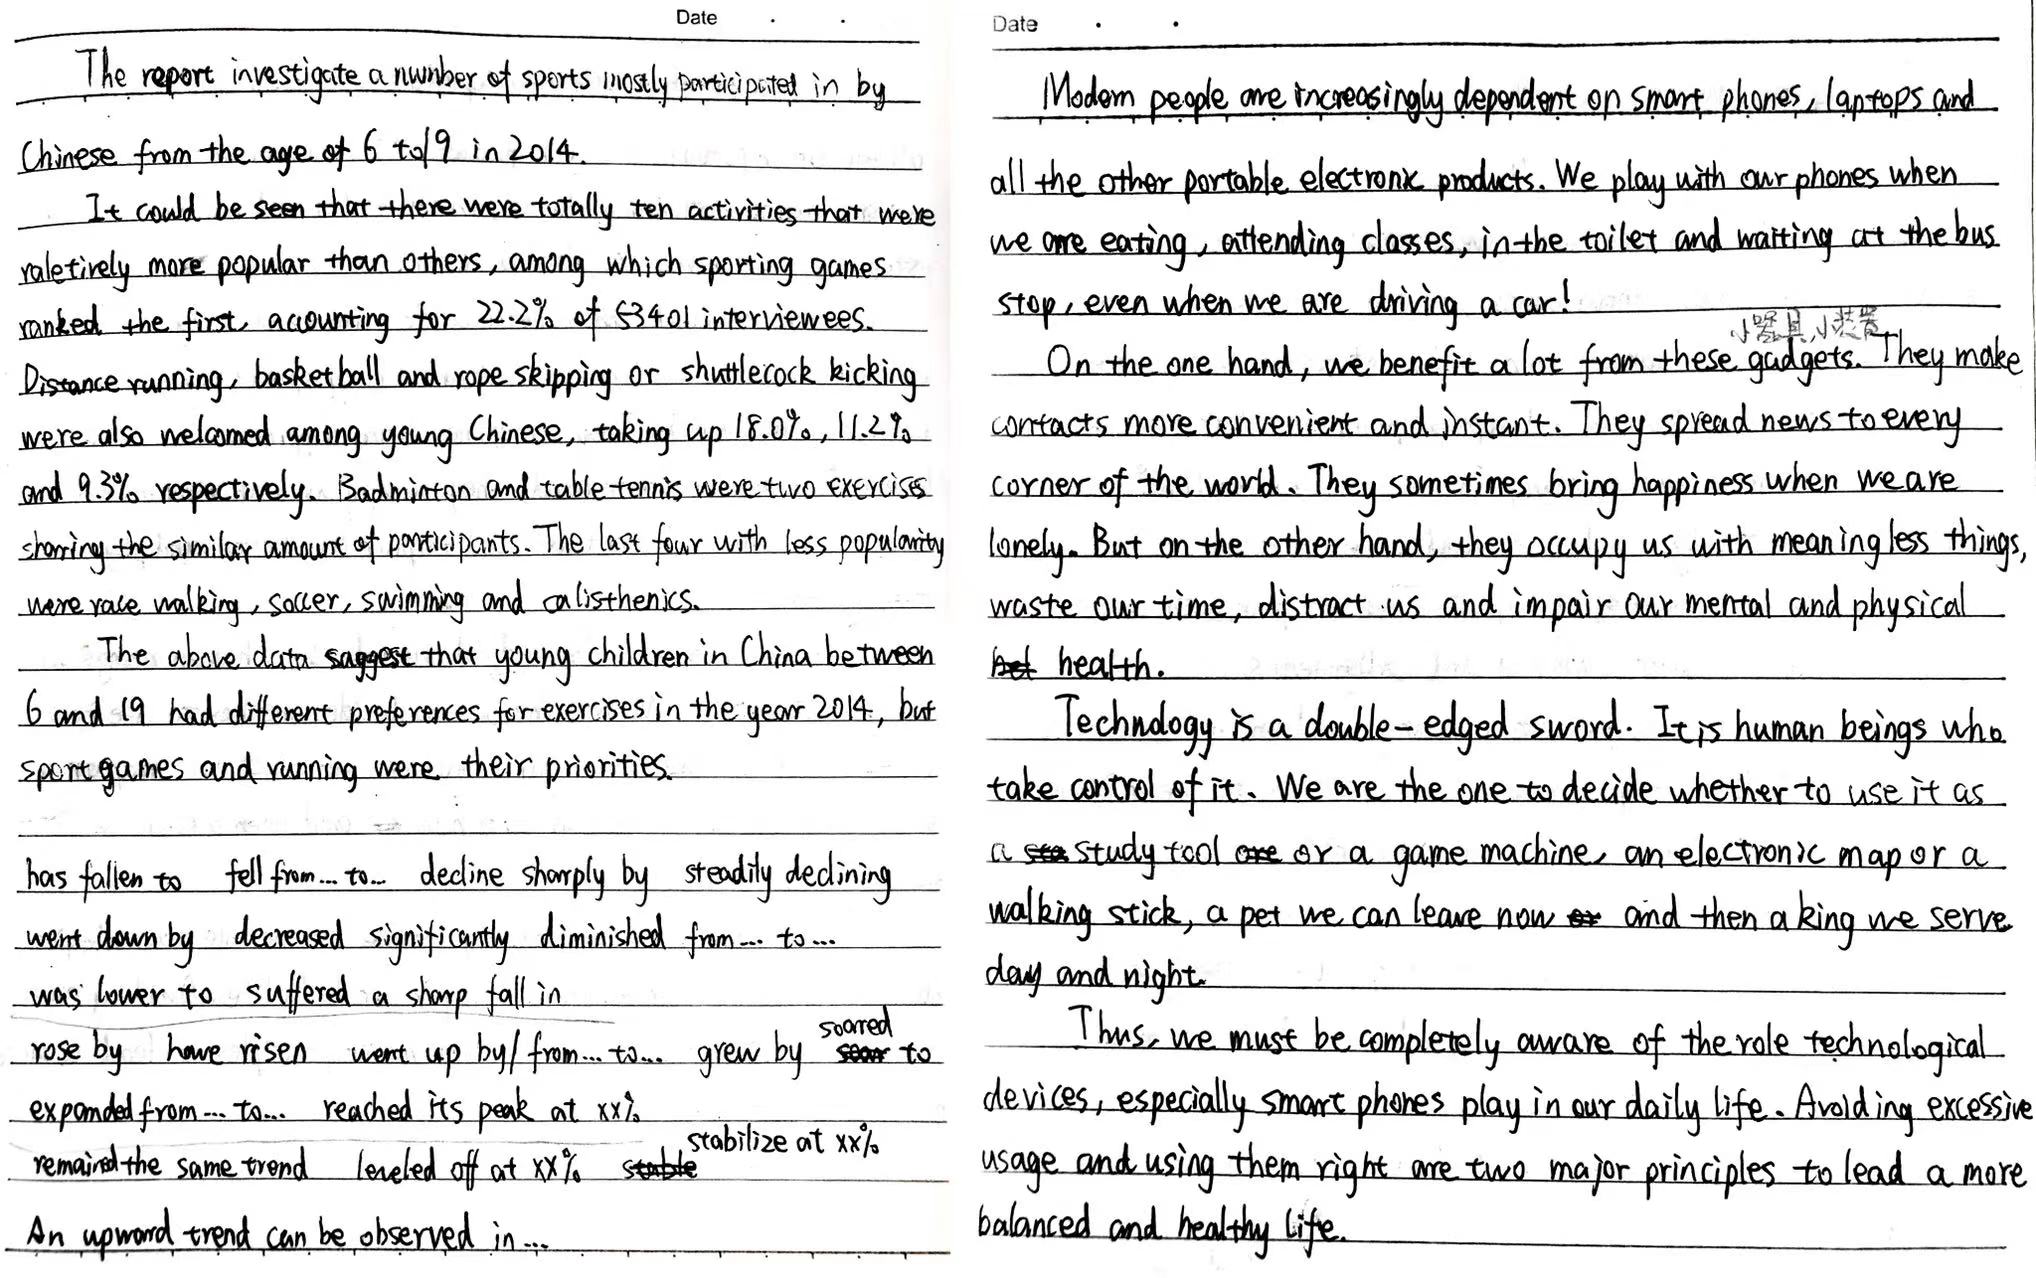 Date
The report investigate a number of sports mostly participated in by
Chinese from the age of 6 to 19 in 2014.
It could be seen that there were totally ten activities that were
raletively more popular than others, among which sporting games
ranked the first, accounting for 22.2% of 53401 interviewees.
Distance running, basketball and rope skipping or shuttlecock kicking
were also welcomed among young Chinese, taking up 18.0%, 11.2%
and 9.3% respectively. Badminton and table tennis were two exercises
sharing the similar amount of participants. The last four with less popularity
were race walking, soccer, swimming and calisthenics.
The above data suggest that young children in China between
6 and 19 had different preferences for exercises in the year 2014, but
sport games and running were their priorities.
has fallen to fell from... to... decline sharply by steadily declining
went down by decreased significantly diminished from... to...
was lower to suffered a sharp fall in
soared
rose by have risen went up by/from... to... grew by soar to
expanded from... to... reached its peak at xx%
stabilize at xx%
remained the same trend leveled off at xx% stable
An upward trend can be observed in...
Date
Modern people are increasingly dependent on smart phones, laptops and
all the other portable electronic products. We play with our phones when
we are eating, attending classes, in the toilet and waiting at the bus
stop, even when we are driving a car!
小器具,小装置
On the one hand, we benefit a lot from these gadgets. They make
contacts more convenient and instant. They spread news to every
corner of the world. They sometimes bring happiness when we are
lonely. But on the other hand, they occupy us with meaningless things,
waste our time, distract us and impair our mental and physical
health.
Technology is a double-edged sword. It is human beings who
take control of it. We are the one to decide whether to use it as
a study tool or a game machine, an electronic map or a
walking stick, a pet we can leave now and then a king we serve
day and night.
Thus, we must be completely aware of the role technological
devices, especially smart phones play in our daily life. Avoiding excessive
usage and using them right are two major principles to lead a more
balanced and healthy life.